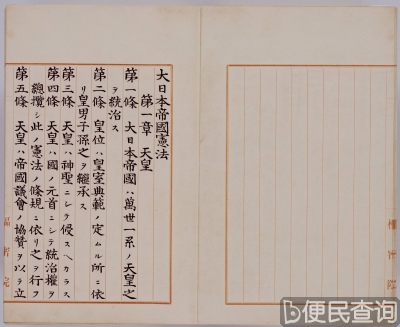 大日本帝國憲法
第一章 天皇
第一條 大日本帝國ハ萬世一系ノ天皇之
ヲ統治ス
第二條 皇位ハ皇室典範ノ定ムル所ニ依
リ皇男子孫之ヲ繼承ス
第三條 天皇ハ神聖ニシテ侵スヘカラス
第四條 天皇ハ國ノ元首ニシテ統治權ヲ
總攬シ此ノ憲法ノ條規ニ依リ之ヲ行フ
第五條 天皇ハ帝國議會ノ協贊ヲ以テ立
樞密院
便民查询